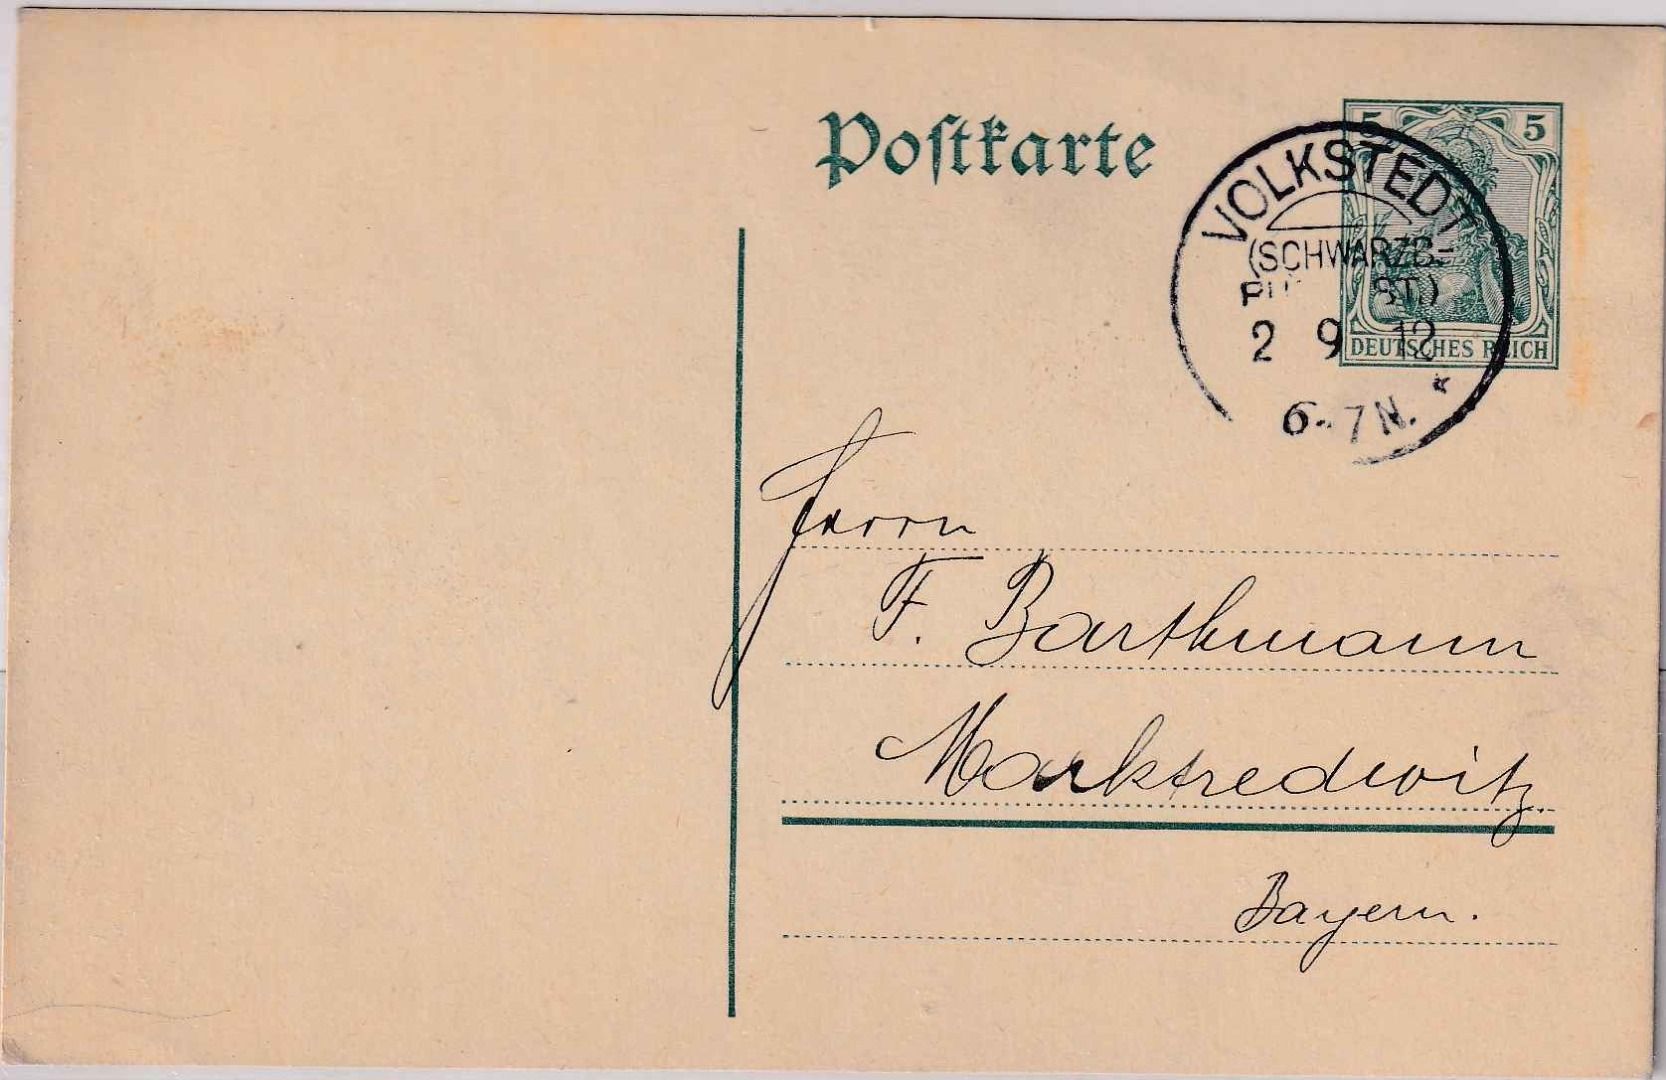 Postkarte
5 5
DEUTSCHES REICH
VOLKSTEDT
(SCHWARZB.-
ST)
2 9 12
6-7N.
Herrn
F. Barthmann
Marktredwitz.
Bayern.